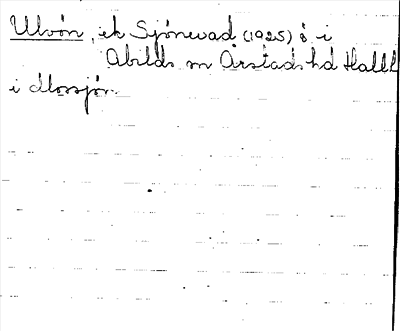 Ulvön, ek Sjönevad (1925) ö i
Abilds sn Årstads hd Hall l
i Mossjön